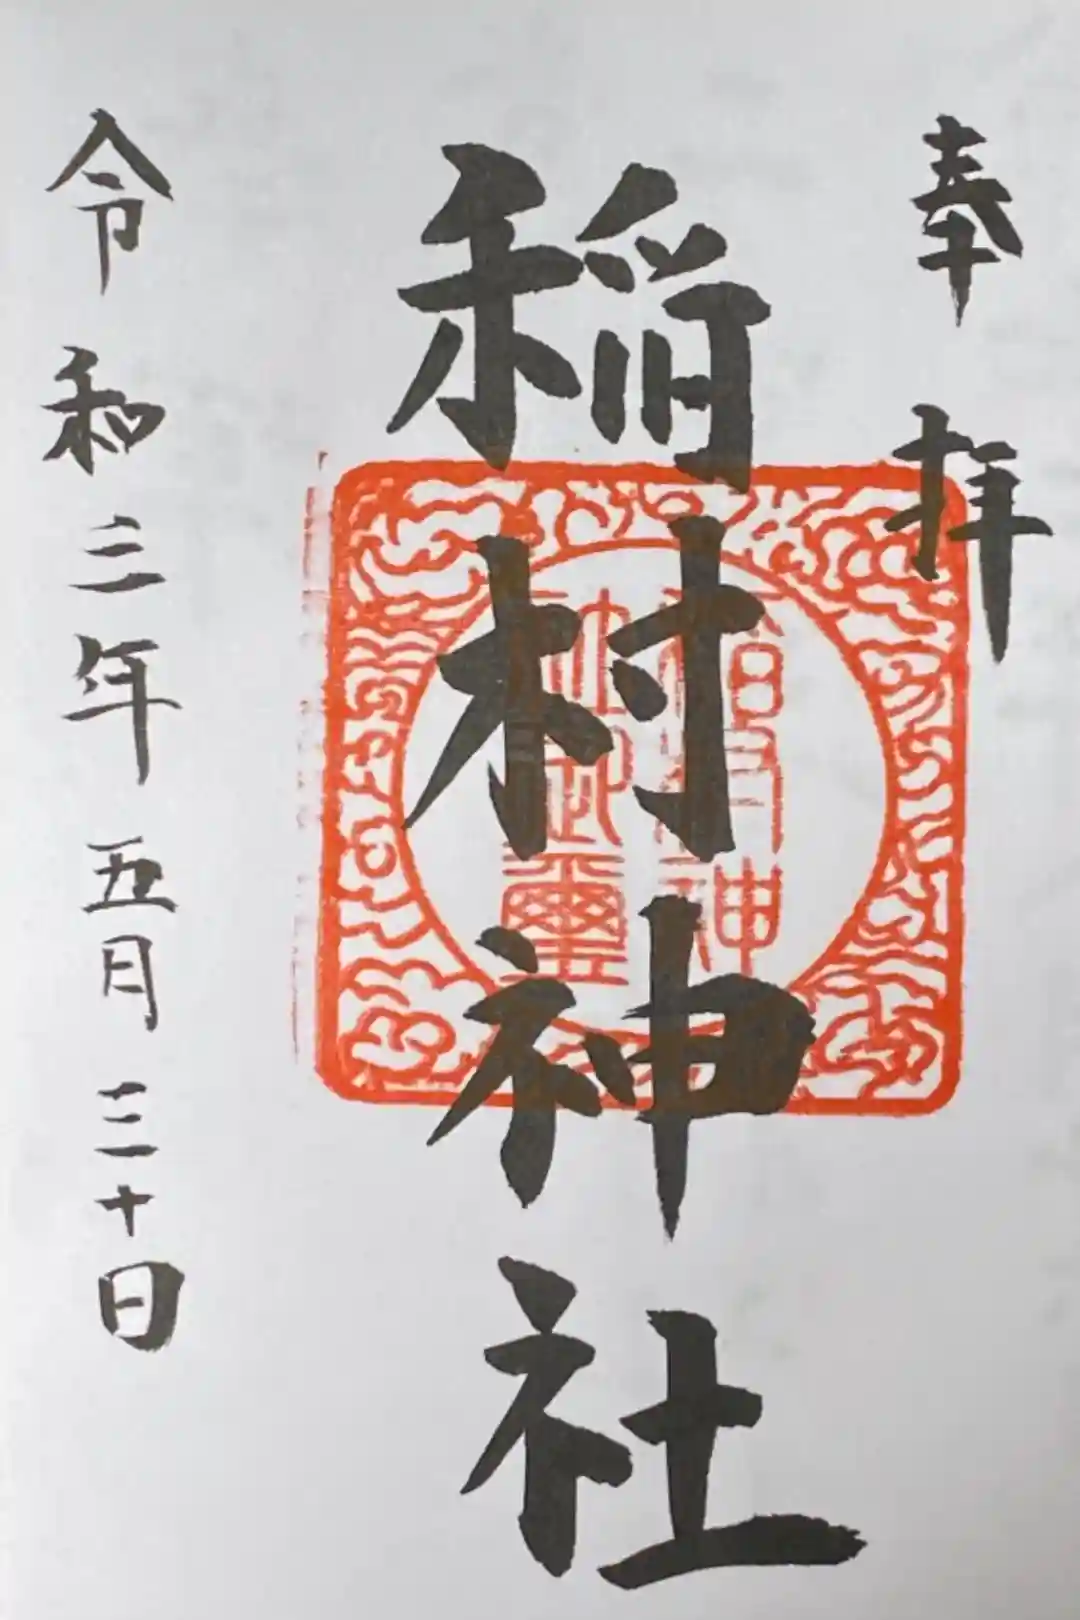 奉拝
稲村神社
稲村神
社御璽
令和三年五月三十日